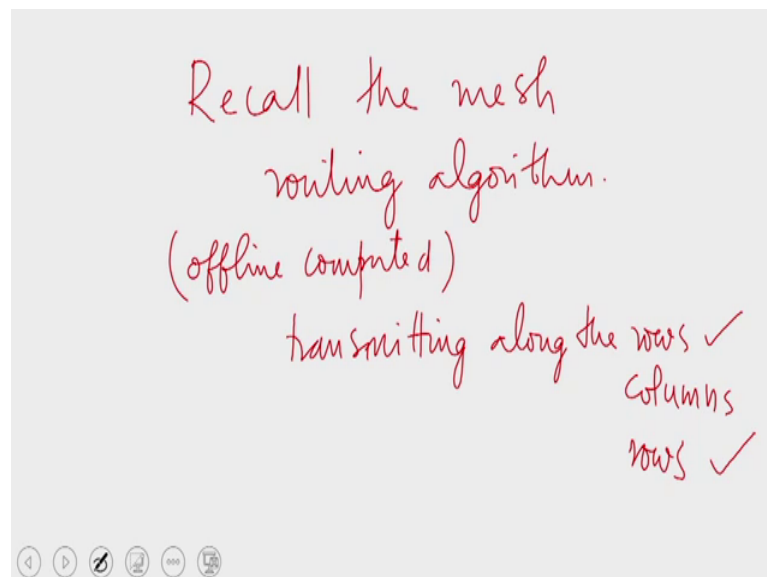 Recall the mesh
routing algorithm.
(offline computed)
transmitting along the rows ✓
columns
rows ✓